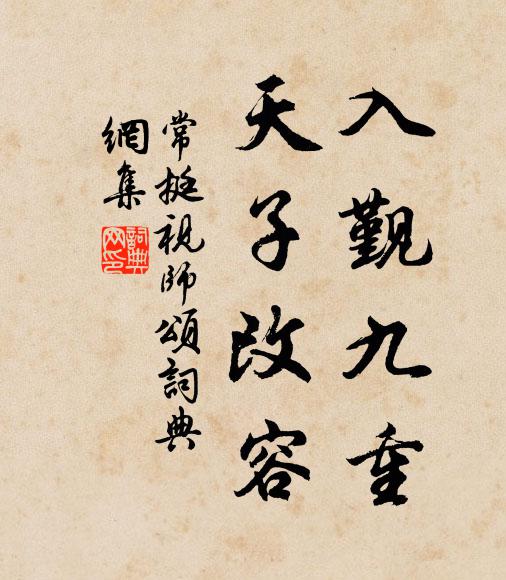 入覲九重
天子改容
常挺視師頌詞典
網集
詞典
网印